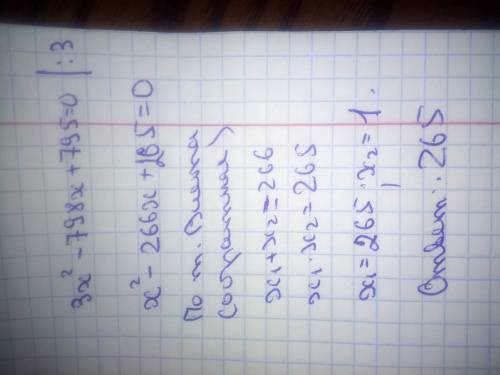 3x² - 798x + 795 = 0 | : 3
x² - 266x + 265 = 0
По т. Виета
(обратная)
x₁ + x₂ = 266
x₁ · x₂ = 265
x₁ = 265, x₂ = 1.
Ответ: 265